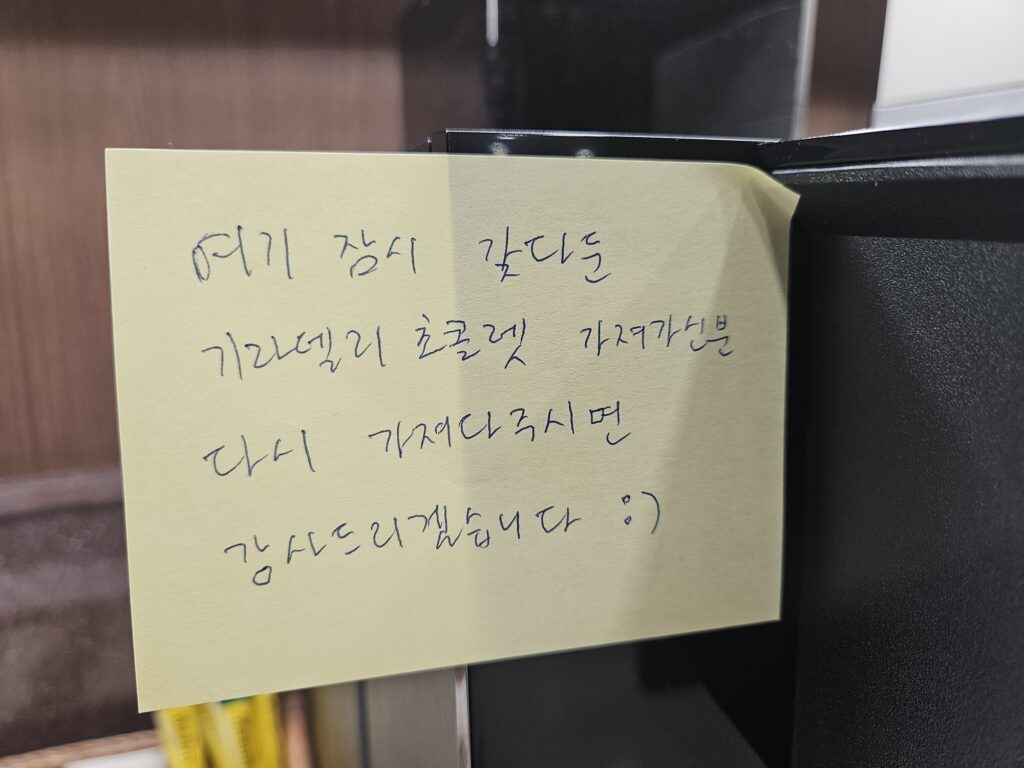 여기 잠시 갖다둔
기라델리 초콜렛 가져가신분
다시 가져다주시면
감사드리겠습니다 :)